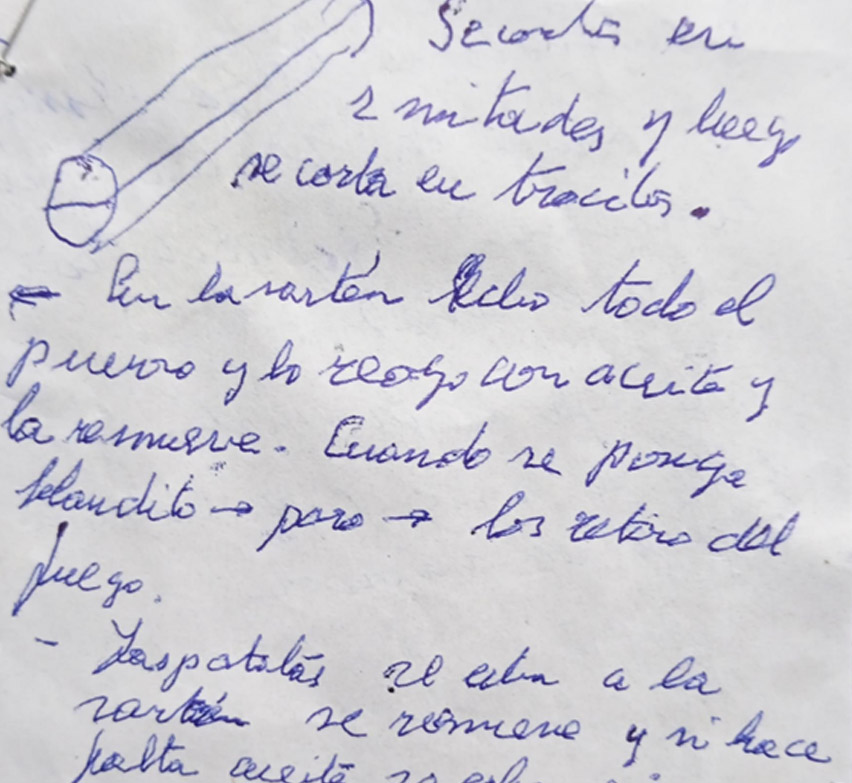 Se corta en
2 mitades y luego
se corta en trocitos.
- En la sartén echo todo el
puerro y lo reogo con aceite y
la remueve. Cuando se ponga
blandito → paro → los retiro del
fuego.
- Las patatas se echan a la
sartén se remueve y si hace
falta aceite se echa